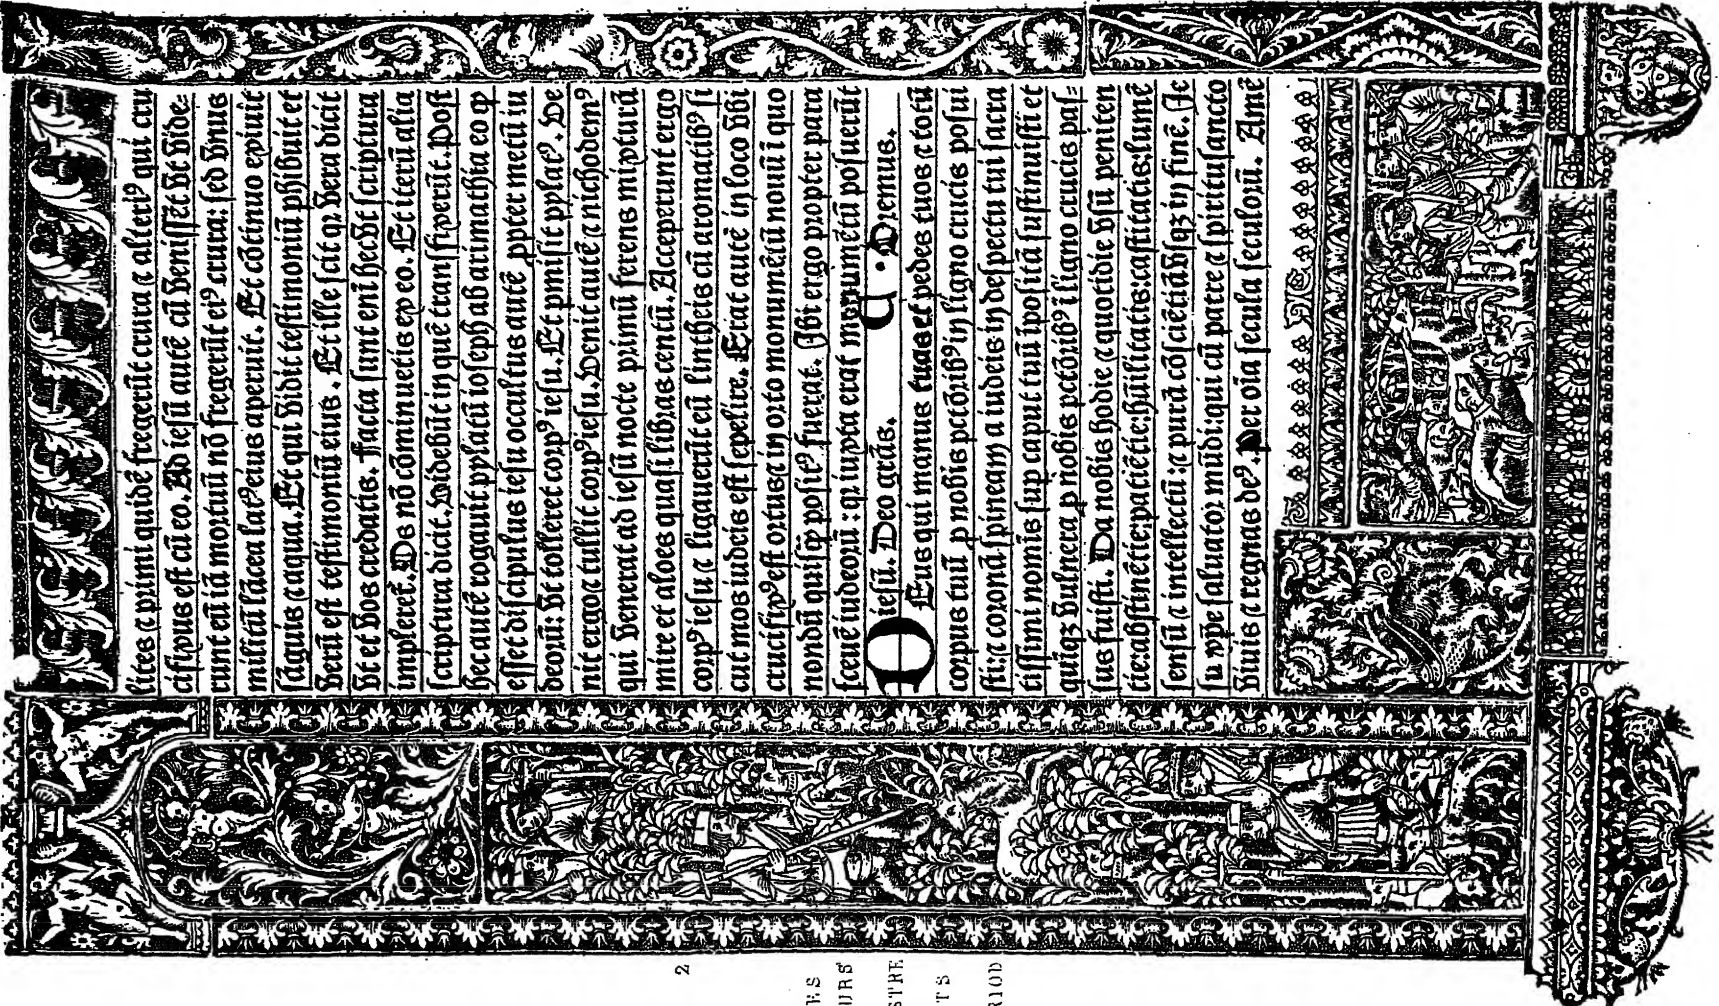 lites ⁊ primi quidē fregerūt crura ⁊ alteriꝰ qui cru
cifixus est cū eo. Ad iesū autē cū venissēt vt vide-
runt eū iā mortuū nō fregerūt eiꝰ crura: sed vnus
militū lācea latꝰ eius aperuit. Et cōtinuo exiuit
sāguis ⁊ aqua. Et qui vidit testimoniū phibuit et
verū est testimoniū eius. Et ille scit qꝛ vera dicit
vt et vos credatis. Facta sunt eni hec vt scriptura
impleret̄. Os nō cōminuetis ex eo. Et iterū alia
scriptura dicit. Videbūt in quē transfixerūt. Post
hec autē rogauit pylatū ioseph ab arimathia eo ꝙ
esset discipulus iesu occultus autē ppter metū iu
deorū: vt tolleret corpꝰ iesu. Et pmisit pylatꝰ. Ve
nit ergo ⁊ tullit corpꝰ iesu. Venit autē ⁊ nichodemꝰ
qui venerat ad iesū nocte primū ferens mixturā
mirre et aloes quasi libras centū. Acceperunt ergo
corpꝰ iesu ⁊ ligauerūt eū lintheis cū aromatibꝰ si
cut mos iudeis est sepelire. Erat autē in loco vbi
crucifixꝰ est ortus ⁊ in orto monumētū nouū i quo
nondū quisꝙ positꝰ fuerat. Ibi ergo propter para
sceuē iudeorū: qꝛ iuxta erat monumētū posuerūt
iesū. Deo grās. Oremus.
Deus qui manus tuas et pedes tuos ⁊ totū
corpus tuū p nobis pctōribꝰ in ligno crucis posui
sti: ⁊ coronā spineam a iudeis in despectu tui sacra
tissimi nomīs sup caput tuū īpositā sustinuisti et
quīqꝫ vulnera p nobis pctōribꝰ i ligno crucis pas-
sus fuisti. Da nobis hodie ⁊ quotidie vsū peniten
tie: abstinētie: patiētie: hūilitatis: castitatis: lumē
sensū ⁊ intellectū: ⁊ purā cōsciētiā vsqꝫ in finē. Ie
su xp̄e saluator mūdi: qui cū patre ⁊ spiritu sancto
viuis ⁊ regnas deꝰ. Per oīa secula seculorū. Amē
2
ES
URS
STRE
TS
RIOD